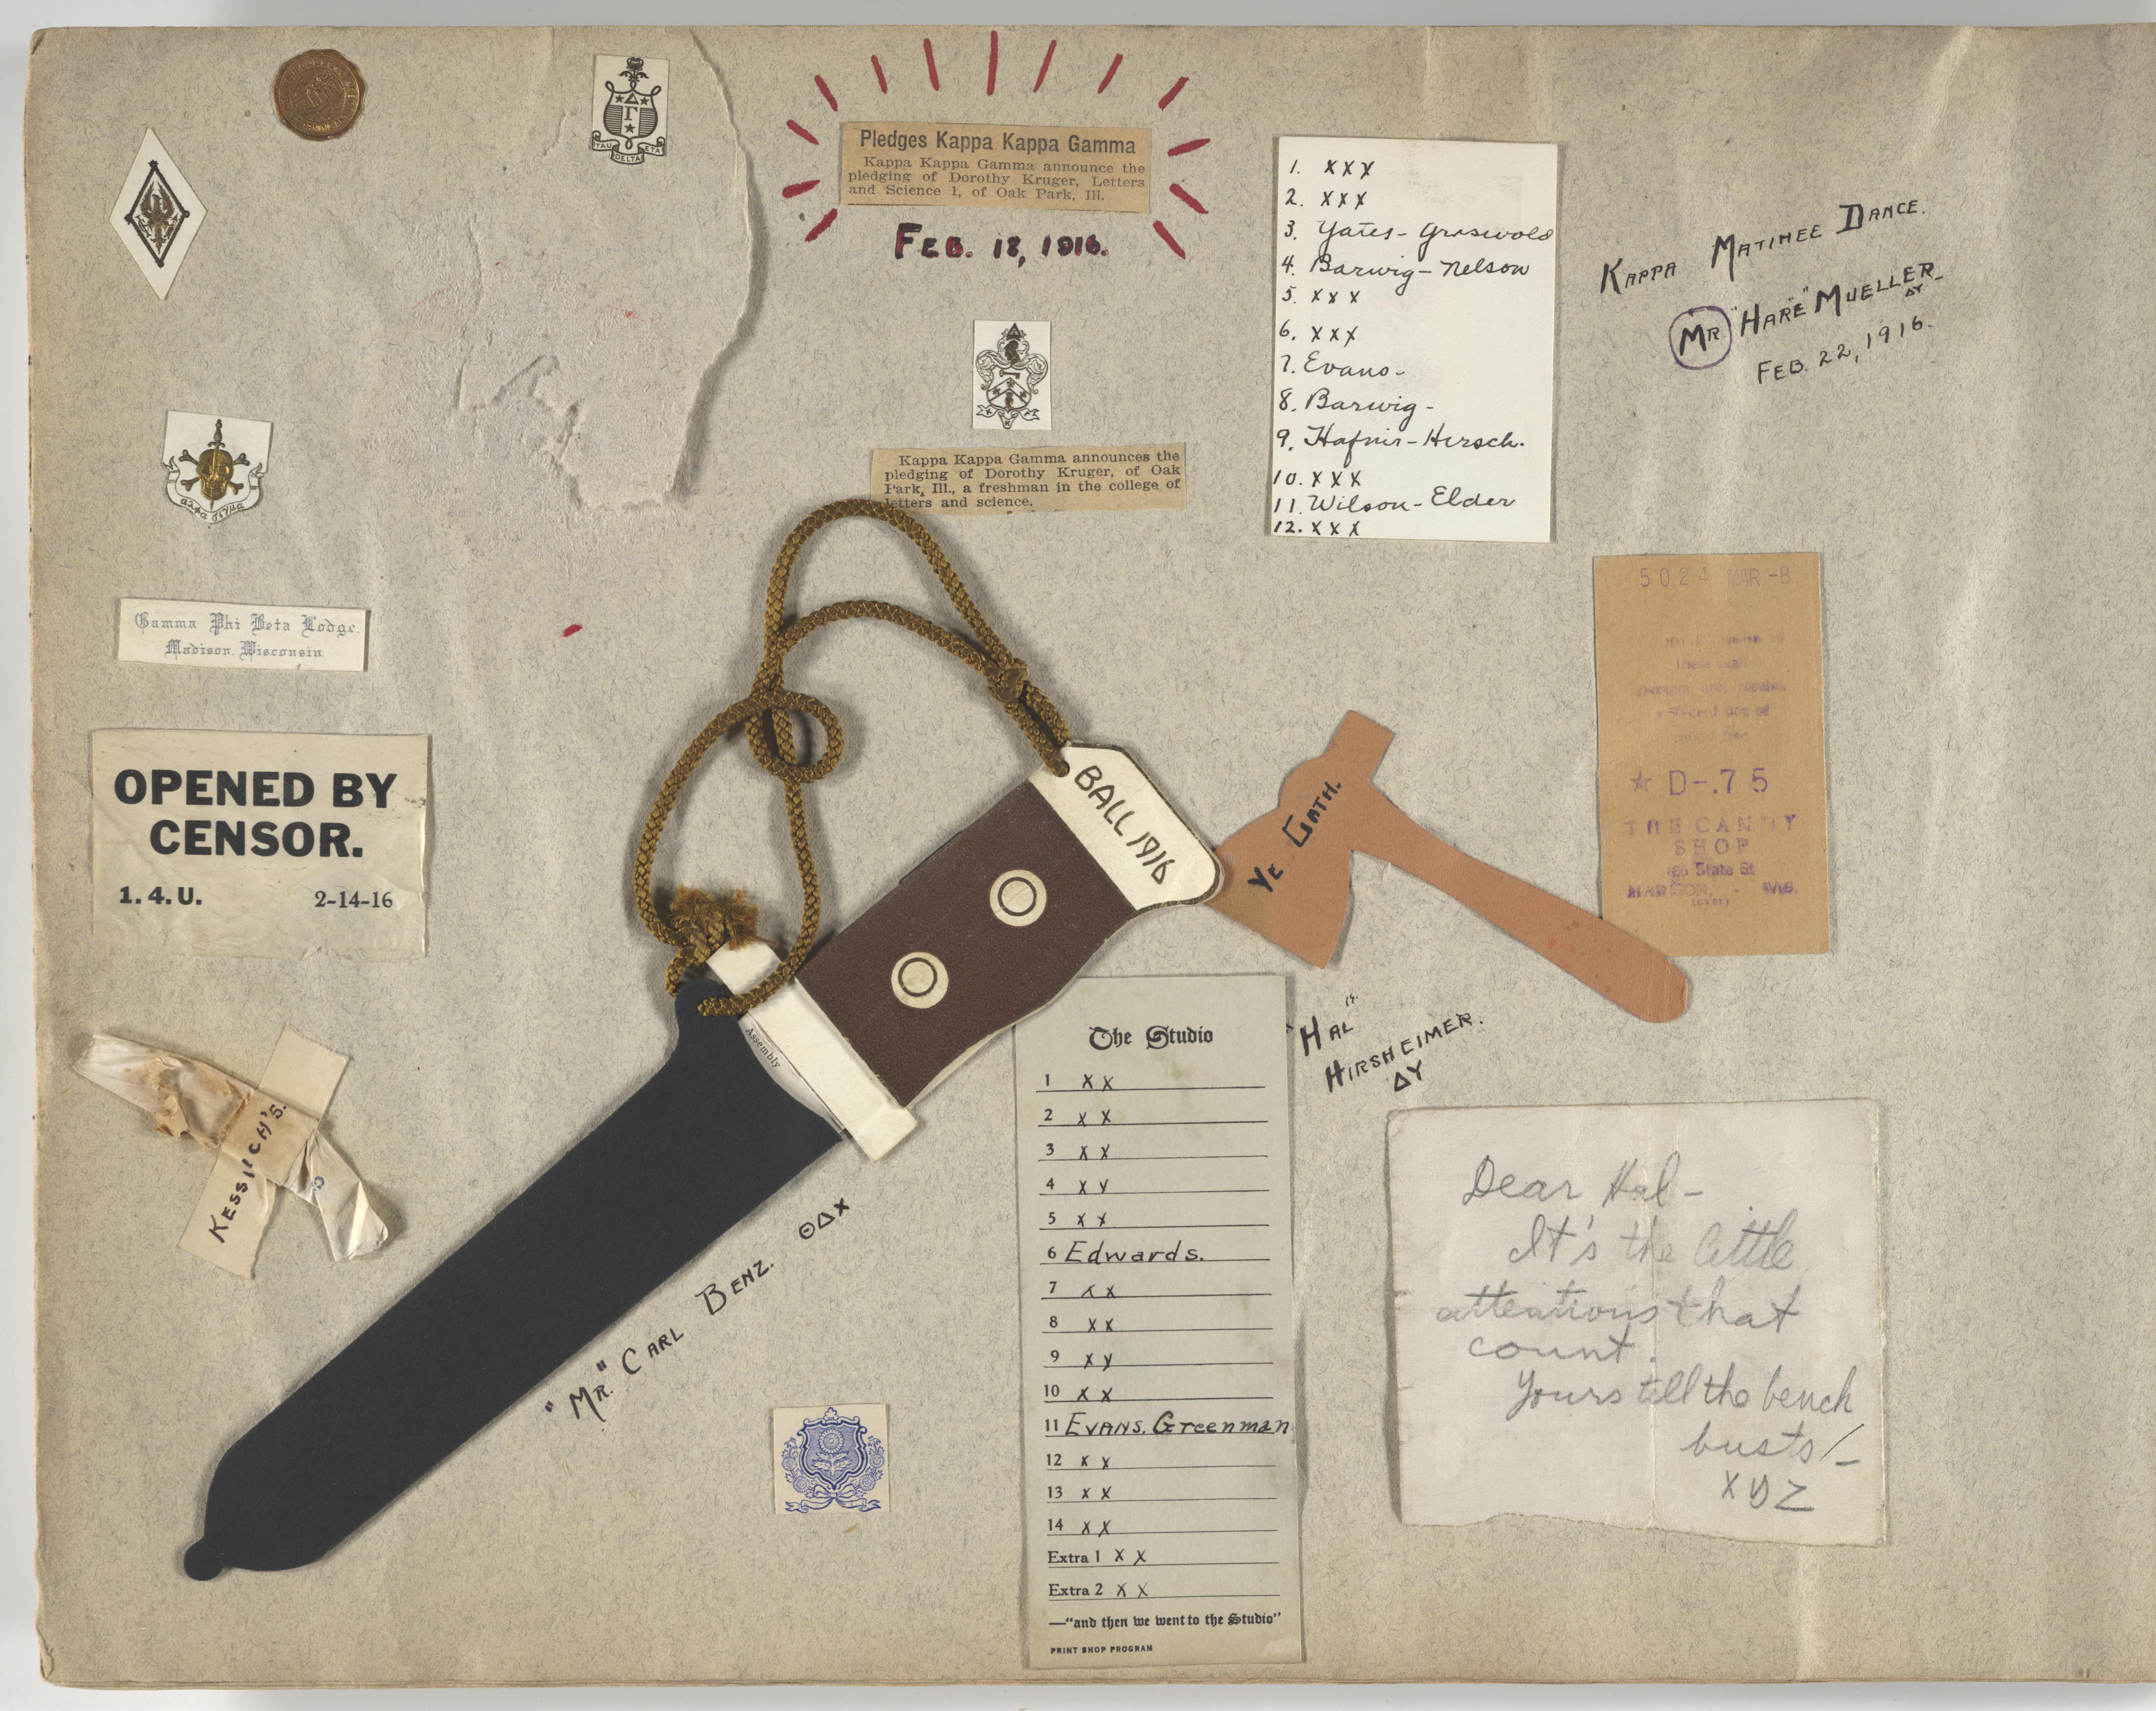 TAU DELTA ETA
Pledges Kappa Kappa Gamma
Kappa Kappa Gamma announce the
pledging of Dorothy Kruger, Letters
and Science 1, of Oak Park, Ill.
FEB. 18, 1916.
Kappa Kappa Gamma announces the
pledging of Dorothy Kruger, of Oak
Park, Ill., a freshman in the college of
letters and science.
1. XXX
2. XXX
3. Yates - Griswold
4. Barwig - Nelson
5. XXX
6. XXX
7. Evans -
8. Barwig -
9. Hafnir - Hirsch.
10. XXX
11. Wilson - Elder
12. XXX
KAPPA MATINEE DANCE.
MR. "HARE" MUELLER
ΔΥ
FEB. 22, 1916.
Gamma Phi Beta Lodge
Madison, Wisconsin
OPENED BY
CENSOR.
1. 4. U. 2-14-16
KESSNICH'S.
BALL 1916
Assembly
"MR." CARL BENZ. ΘΔΧ
YE GATH.
5024 MAR -8
★ D-.75
THE CANDY
SHOP
State St
MADISON, - WIS.
(over)
"HAL"
HIRSHEIMER.
ΔΥ
The Studio
1 XX
2 XX
3 XX
4 XX
5 XX
6 Edwards.
7 XX
8 XX
9 XX
10 XX
11 EVANS. Greenman
12 XX
13 XX
14 XX
Extra 1 XX
Extra 2 XX
—"and then we went to the Studio"
PRINT SHOP PROGRAM
Dear Hal -
It's the little
attentions that
count.
Yours till the bench
busts/-
XYZ